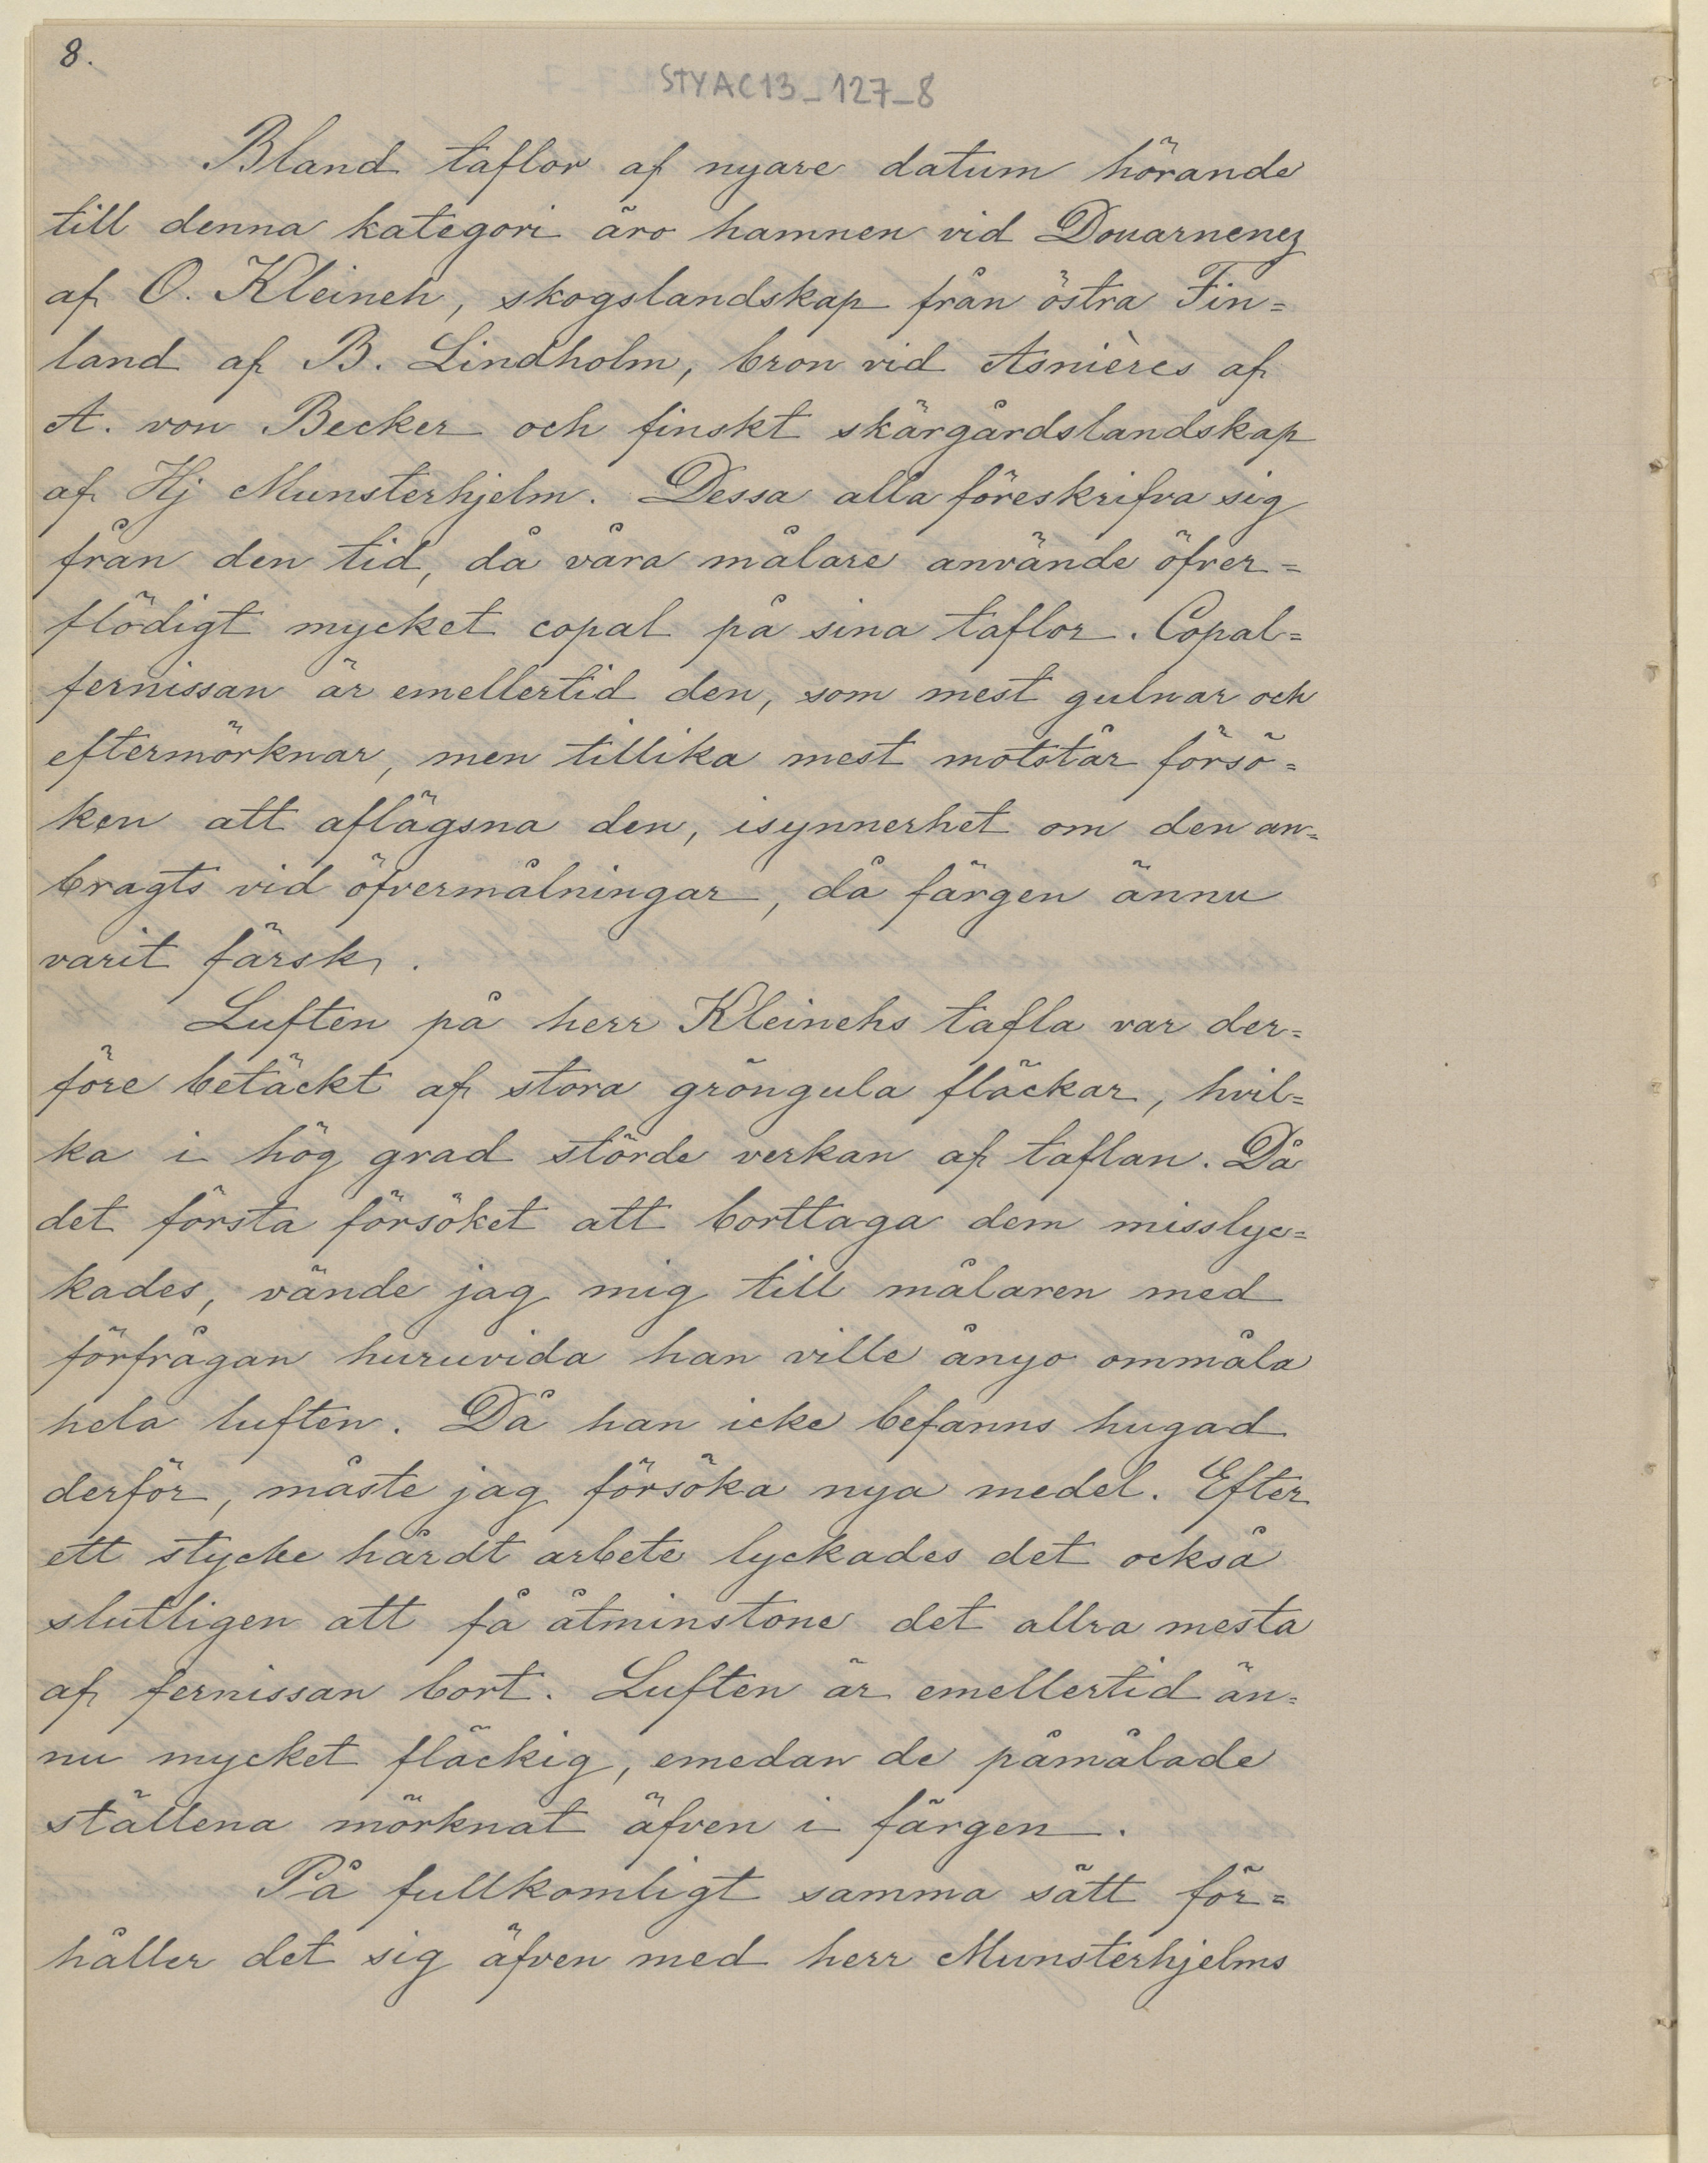 8.
STYAC13_127_8
Bland taflor af nyare datum hörande
till denna kategori äro hamnen vid Douarnenez
af O. Kleineh, skogslandskap från östra Fin=
land af B. Lindholm, bron vid Asnières af
A. von Becker och finskt skärgårdslandskap
af Hj Munsterhjelm. Dessa alla föreskrifva sig
från den tid, då våra målare använde öfver=
flödigt mycket copal på sina taflor. Copal=
fernissan är emellertid den, som mest gulnar och
eftermörknar, men tillika mest motstår försö=
ken att aflägsna den, isynnerhet om den an=
bragts vid öfvermålningar, då färgen ännu
varit färsk.
Luften på herr Kleinehs tafla var der=
före betäckt af stora gröngula fläckar, hvil=
ka i hög grad störde verkan af taflan. Då
det första försöket att borttaga dem misslyc=
kades, vände jag mig till målaren med
förfrågan huruvida han ville ånyo ommåla
hela luften. Då han icke befanns hugad
derför, måste jag försöka nya medel. Efter
ett stycke hårdt arbete lyckades det också
slutligen att få åtminstone det allra mesta
af fernissan bort. Luften är emellertid än=
nu mycket fläckig, emedan de påmålade
ställena mörknat äfven i färgen.
På fullkomligt samma sätt för=
håller det sig äfven med herr Munsterhjelms